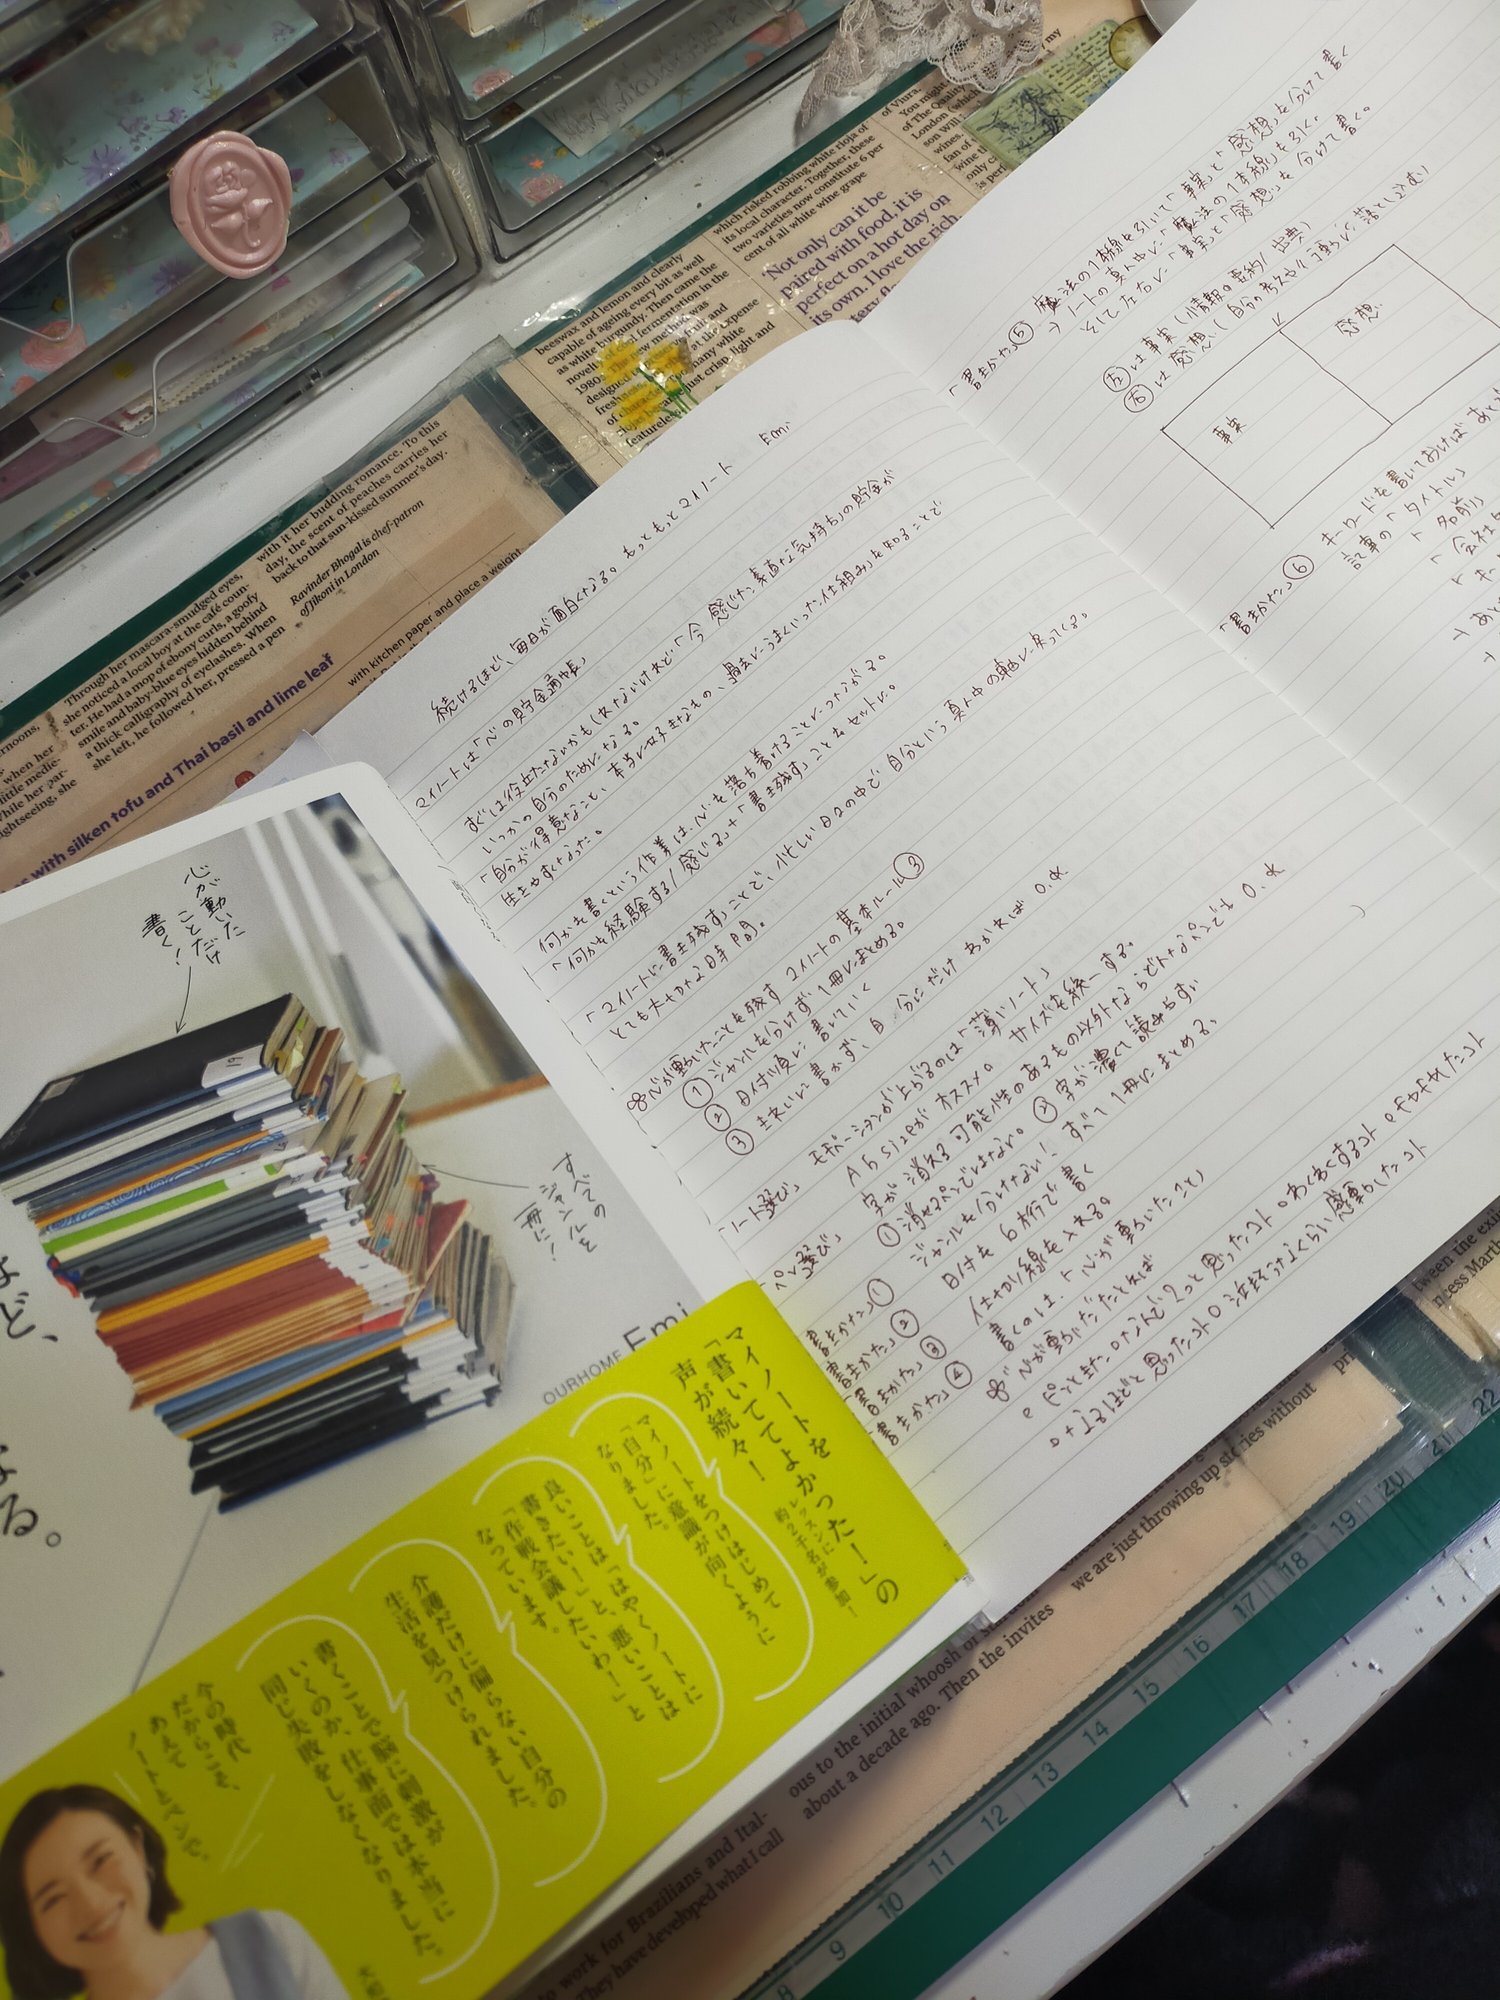 続けるほど、毎日が面白くなる。もっともっとマイノート Emi
マイノートは「心の貯金通帳」
すぐには役立たないかもしれないけれど「今感じた素直な気持ち」の貯金が
いつかの自分のためになる。
「自分が得意なこと、本当に好きなもの、過去にうまくいった仕組み」を知ることで
生きやすくなった。
何かを書くという作業は、心を落ち着けることにつながる。
「何かを経験する/感じる」+「書き残す」ことをセットに。
「マイノートに書き残す」ことで、忙しい日々の中で自分という真ん中の軸に戻ってくる。
とても大切な時間。
心が動いたことを残す マイノートの基本ルール③
① ジャンルを分けず1冊にまとめる。
② 日付順に書いていく
③ きれいに書かず、自分にだけわかればO.K
「ノート選び」 モチベーションが上がるのは「薄いノート」
A5 sizeがオススメ。サイズを統一する。
「ペン選び」 字が消える可能性のあるもの以外ならどんなペンでもO.K
①消せるペンではない。②字が濃くて読みやすい
「書きかた」① ジャンルを分けない！すべて1冊にまとめる。
「書きかた」② 日付を6桁で書く
「書きかた」③ 仕切り線を入れる。
「書きかた」④ 書くのは、「心が動いたこと」
心が動いたたとえば
ピンときた なんで？っと思ったコト わくわくするコト
なるほどと思ったコト 泣きそうなくらい感動したコト
「書きかた」⑤ 魔法の1本線を引いて「事実」と「感想」を分けて書く
→ ノートの真ん中に「魔法の1本線」を引く。
そして左右に「事実」と「感想」を分けて書く。
左は事実(情報の要約/出典)
右は感想(自分の考えや
事実
感想
「書きかた」⑥ キーワードを書いておけばあと
記事の「タイトル」
「名前」
「会社
「キー
心が動いた
ことだけ
書く！
すべての
ジャンルを
一冊に！
19
ど、
る。
OURHOME Emi
マイノートを
「書いててよかった！」の
声が続々！
レッスンに
約2千名が参加！
マイノートをつけはじめて
「自分」に意識が向くように
なりました。
良いことは「はやくノートに
書きたい！」と、悪いことは
「作戦会議したいわ！」と
なっています。
介護だけに偏らない自分の
生活を見つけられました。
書くことで脳に刺激が
いくのか、仕事面では本当に
同じ失敗をしなくなりました。
今の時代
だからこそ、
あえて
ノートとペンで。
which risked robbing white rioja of
its local character. Together, these
two varieties now constitute 6 per
cent of all white wine grape
Not only can it be
paired with food, it is
perfect on a hot day on
its own. I love the rich,
beeswax and lemon and clearly
capable of ageing every bit as well
as white burgundy. Then came the
of Viura.
You might
of The Quality
London (which
son will
wines.
fan of
only c
is perl
with it her budding romance. To this
day, the scent of peaches carries her
back to that sun-kissed summer's day.
Ravinder Bhogal is chef-patron
of Jikoni in London
Through her mascara-smudged eyes,
she noticed a local boy at the café coun-
ter. He had a mop of ebony curls, a goofy
smile and baby-blue eyes hidden behind
a thick calligraphy of eyelashes. When
she left, he followed her, pressed a pen
with silken tofu and Thai basil and lime leaf
with kitchen paper and place a weight
we are just throwing up stories without
ous to the initial whoosh of
about a decade ago. Then the invites
to work for Brazilians and Ital-
They have developed what I call
tween the exii
ncess Marth
22
21
20
19
18
17
16
15
14
13
12
11
10
9
8